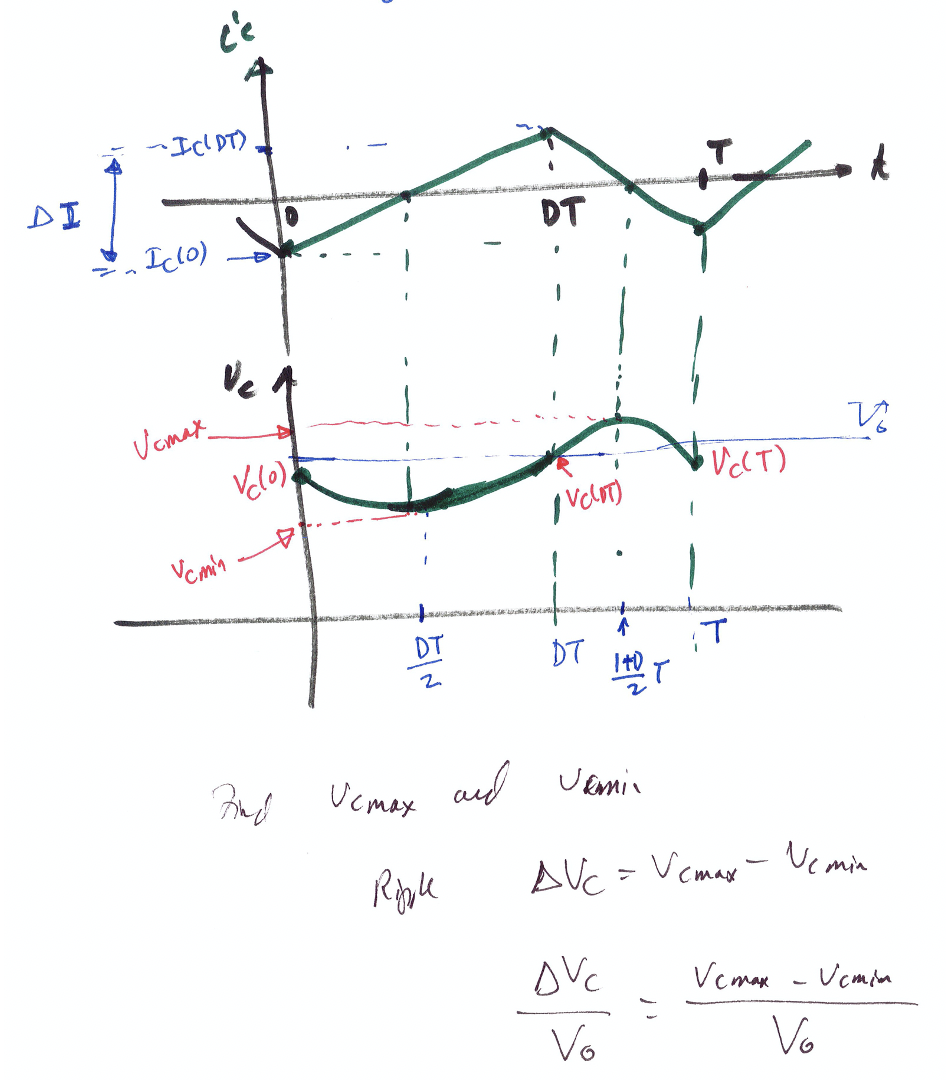 ic
Ic(DT)
T
t
ΔI
0
DT
Ic(0)
Vc
Vcmax
V0
Vc(0)
Vc(T)
Vc(DT)
Vcmin
DT/2
DT
1+D/2 T
T
Find Vcmax and Vcmin
Ripple ΔVc = Vcmax - Vcmin
ΔVc/V0 = Vcmax - Vcmin/V0